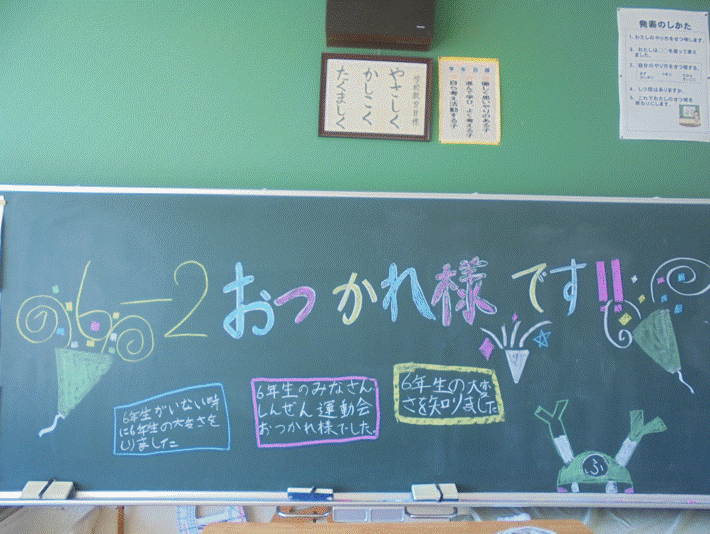 学校教育目標
やさしく
かしこく
たくましく
学年目標
優しく思いやりのある子
進んで学び、よく考える子
自ら考え活動する子
発表のしかた
1. わたしのやり方をせつ明します。
2. わたしは□□を使って考え
ました。
3. 自分のやり方をせつ明する。
4. しつ問はありますか。
5. これでわたしのせつ明を
終わりにします。
6-2おつかれ様です!!
6年生がいない時
に6年生の大変さを
しりました
6年生のみなさん、
しんぜん運動会
おつかれ様でした。
6年生の大変
さを知りました
ふ